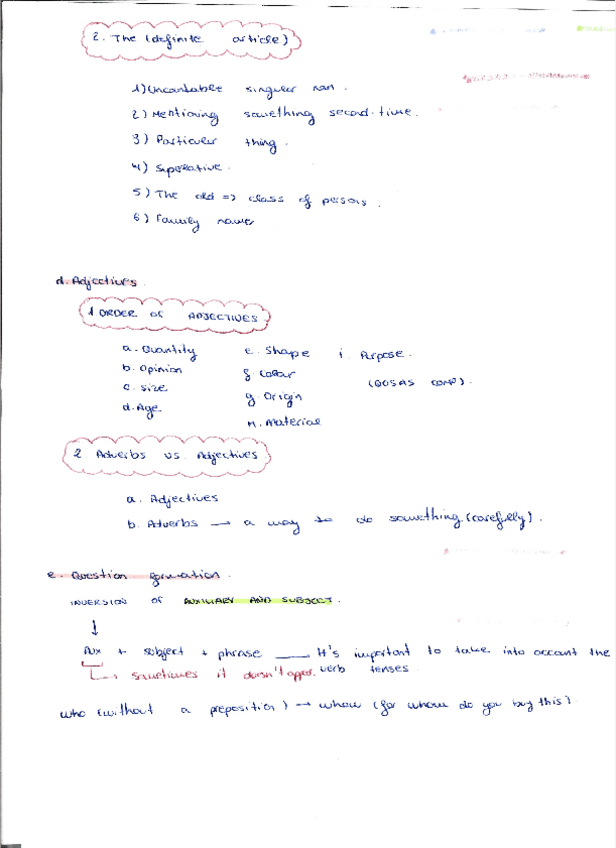 2. The (definite article)
1) Uncountable singular nan.
2) Mentioning something second time.
3) Particular thing.
4) Superative.
5) The old => class of persons.
6) Family name
d. Adjectives.
1 ORDER OF ADJECTIVES.
a. Quantity e. Shape i. Purpose.
b. Opinion f. Colour (QOSAS COMP).
c. Size g. Origin
d. Age h. Material
2 Adverbs vs. Adjectives
a. Adjectives
b. Adverbs → a way to do something (carefully).
e. Question formation.
INVERSION OF AUXILIARY AND SUBJECT.
↓
Aux + subject + phrase ___ It's important to take into account the
verb tenses
→ sometimes it doesn't apper.
who (without a preposition) → whom (for whom do you buy this)